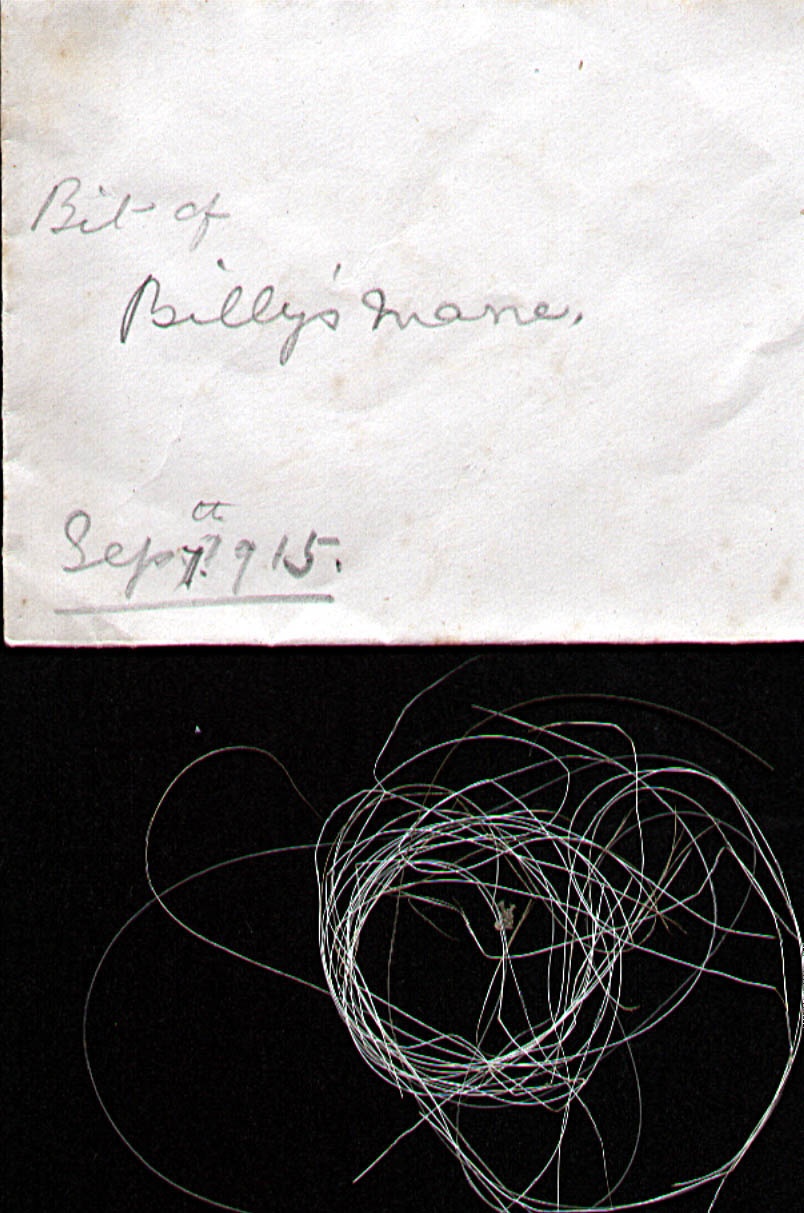 Bit of
Billy's mane.
Sep 7th 1915.